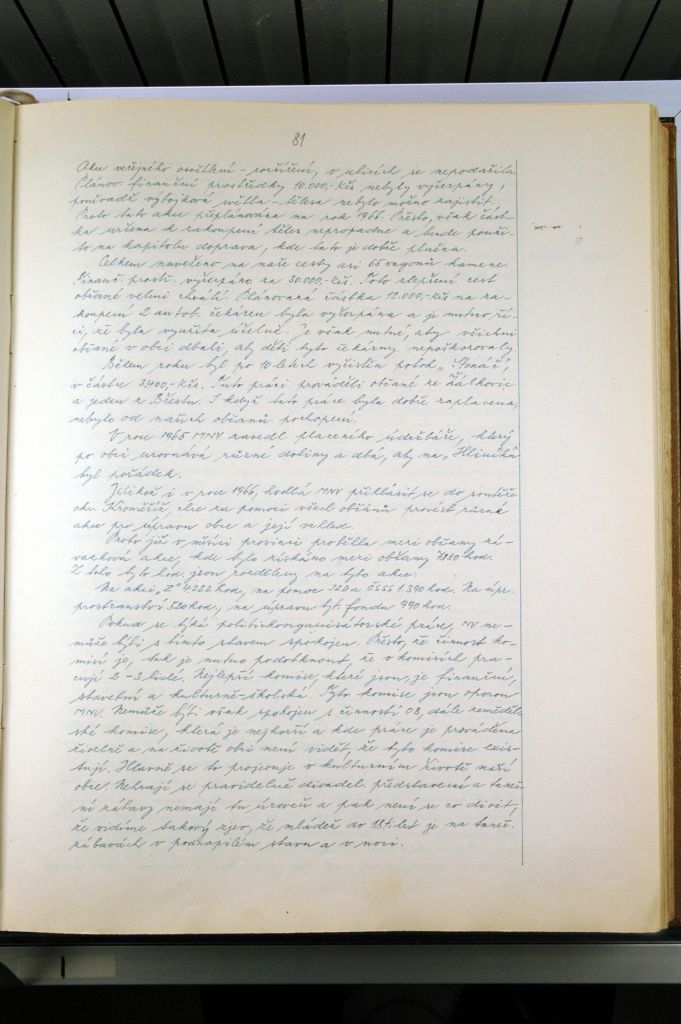 81
Akce veřejného osvětlení - rozšíření, v ulicích se nepodařila
Plánov. finanční prostředky 10.000,-Kčs nebyly vyčerpány,
poněvadž výbojková světla - tělesa nebylo možno zajistit.
Proto tato akce přeplánována na rok 1966. Přesto, však část-
ka určena k zakoupení těles nepropadne a bude použi-
to na kapitolu doprava, kde tato je dobře plněna.
Celkem navečeno na naše cesty asi 65 vagonů kamene.
Finanč. prostř. vyčerpáno za 30.000,-Kčs. Toto zlepšení cest
občané velmi chválí. Plánovaná částka 12.000,-Kčs na za-
koupení 2 autob. čekáren byla vyčerpána a je nutno ří-
ci, že byla využita účelně. Je však nutné, aby všichni
občané v obci dbali, aby děti tyto čekárny nepoškozovaly.
Během roku byl po 10 letech vyčistěn potok
v částce 3.400,-Kčs. Tuto práci prováděli občané ze Žalkovic
a jeden z Břestu. I když tato práce byla dobře zaplacena,
nebylo od našich občanů pochopení.
V roce 1965 MNV zavedl placeného údržbáře, který
po obci urovnává různé doliny a dbá, aby na „Hliníku"
byl pořádek.
Jelikož i v roce 1966, hodlá MNV přihlásit se do soutěže
okr. Kroměříž, chce za pomoci všech občanů provést různé
akce pro úpravu obce a její vzhled.
Proto již v měsíci prosinci proběhla mezi občany zá-
vazková akce, kde bylo získáno mezi občany 7180 hod.
Z toho tyto hod. jsou rozděleny na tyto akce:
Na akci „Z" 4.222 hod., na pomoc JZD a ČSSS 1.390 hod. Na úpr.
prostranství 520 hod., na úpravu byt. fondu 990 hod.
Pokud se týká politickoorganisátorské práce, NV ne-
může býti s tímto stavem spokojen. Přesto, že činnost ko-
misí je, tak je nutno podotknout, že v komisích pra-
cují 2-3 lidé. Nejlepší komise, které jsou, je finanční,
stavební a kulturně-školská. Tyto komise jsou oporou
MNV. Nemůže býti však spokojen s činností OB, dále zeměděl-
ské komise, která je nejhorší a kde práce je prováděna
živelně a na životě obce není vidět, že tyto komise exis-
tují. Hlavně se to projevuje v kulturním životě naší
obce. Nehrají se pravidelně divadel. představení a taneč-
ní zábavy nemají tu úroveň a pak není se co divit,
že vidíme takový zjev, že mládež do 18ti let je na taneč.
zábavách v podnapilém stavu a v noci.